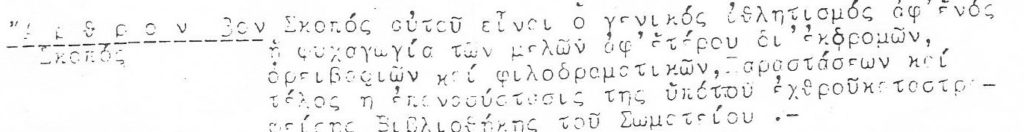 "Ἄ ρ θ ρ ο ν 3ον Σκοπός αὐτοῦ εἶναι ὁ γενικός ἀθλητισμός ἀφ'ἑνός
Σκοπός ἡ ψυχαγωγία τῶν μελῶν ἀφ'ἑτέρου δι'ἐκδρομῶν,
ὀρειβασιῶν καί φιλοδραματικῶν, Παραστάσεων καί
τέλος η ἐπανασύστασις της ὑπό τοῦ ἐχθροῦ καταστρα-
φείσης Βιβλιοθήκης τοῦ Σωματείου .-